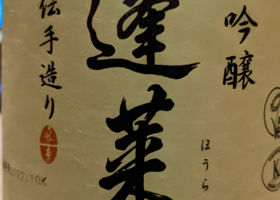 吟醸
蓬莱
ほうら
伝手造り
2022.10K